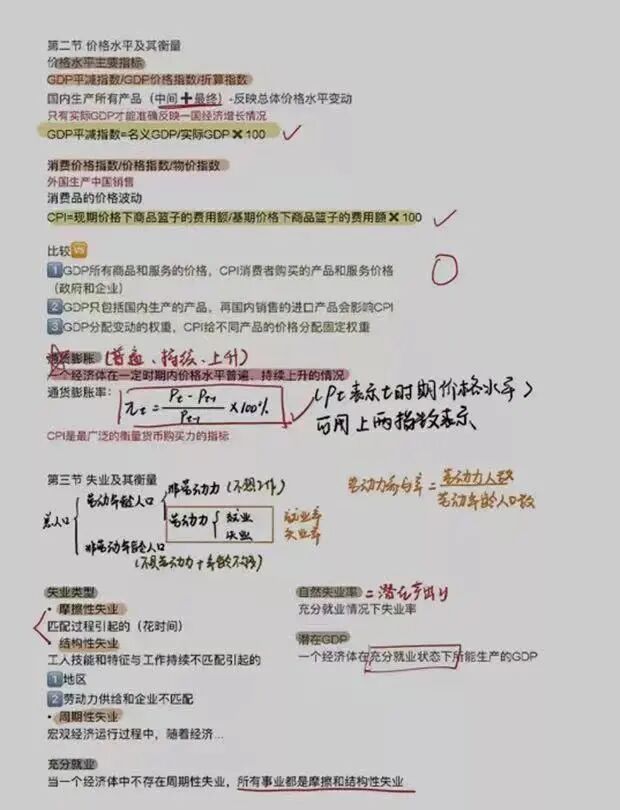 第二节 价格水平及其衡量
价格水平主要指标
GDP平减指数/GDP价格指数/折算指数
国内生产所有产品（中间➕最终）-反映总体价格水平变动
只有实际GDP才能准确反映一国经济增长情况
GDP平减指数=名义GDP/实际GDP✖100
消费价格指数/价格指数/物价指数
外国生产中国销售
消费品的价格波动
CPI=现期价格下商品篮子的费用额/基期价格下商品篮子的费用额✖100
比较🆚
1️⃣GDP所有商品和服务的价格，CPI消费者购买的产品和服务价格
（政府和企业）
2️⃣GDP只包括国内生产的产品，再国内销售的进口产品会影响CPI
3️⃣GDP分配变动的权重，CPI给不同产品的价格分配固定权重
通货膨胀（普遍、持续、上升）
经济体在一定时期内价格水平普遍、持续上升的情况
通货膨胀率：πt = (Pt - Pt-1)/Pt-1 ×100%（Pt表示t时期价格水平）
可用上两指数表示
CPI是最广泛的衡量货币购买力的指标
第三节 失业及其衡量
总人口
劳动年龄人口
非劳动力（不想工作）
劳动力
就业
失业
就业率
失业率
非劳动年龄人口
劳动力参与率=劳动力人数/劳动年龄人口数
失业类型
• 摩擦性失业
匹配过程引起的（花时间）
• 结构性失业
工人技能和特征与工作持续不匹配引起的
1️⃣地区
2️⃣劳动力供给和企业不匹配
• 周期性失业
宏观经济运行过程中，随着经济...
充分就业
当一个经济体中不存在周期性失业，所有事业都是摩擦和结构性失业
自然失业率=潜在产出
充分就业情况下失业率
潜在GDP
一个经济体在充分就业状态下所能生产的GDP